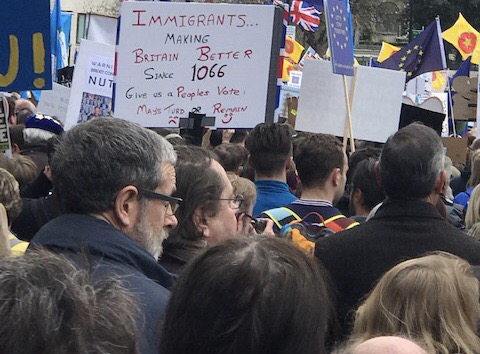 IMMIGRANTS...
MAKING
BRITAIN BETTER
SINCE 1066
GIVE US A PEOPLES VOTE!
MAYS TURD OR REMAIN
U!
WARNI
NUT